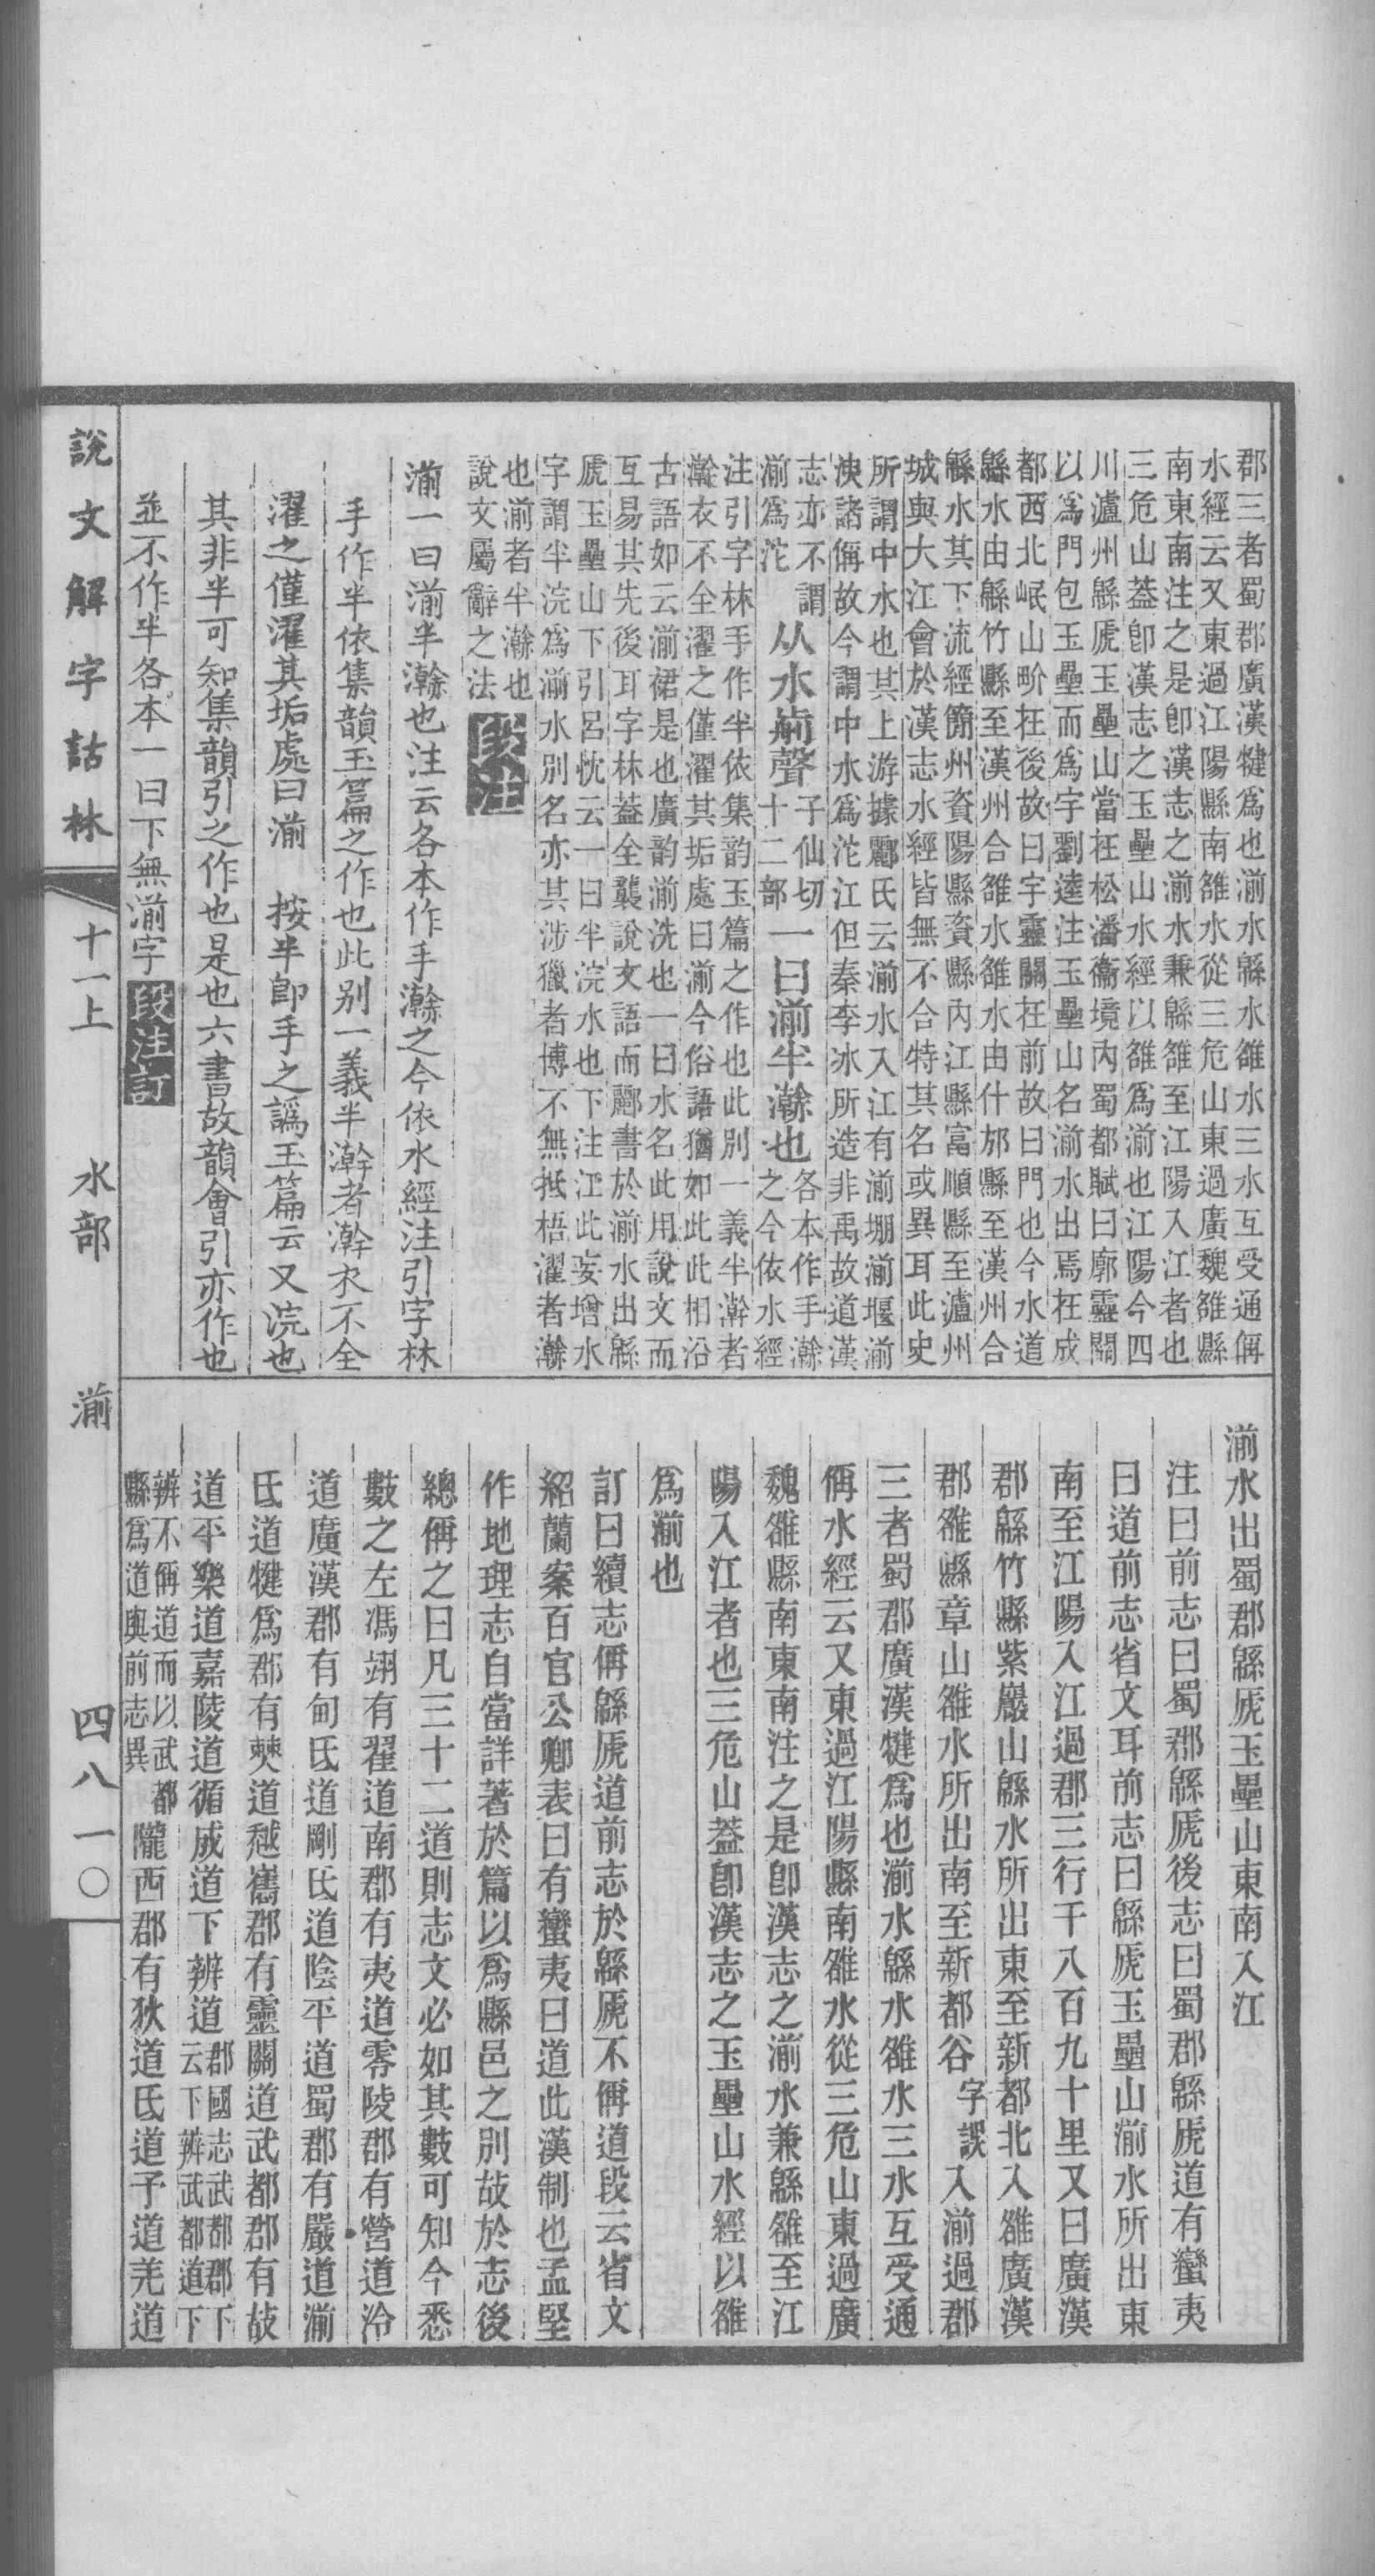 郡三者蜀郡廣漢犍爲也湔水緜水雒水三水互受通偁
水經云又東過江陽縣南雒水從三危山東過廣魏雒縣
南東南注之是卽漢志之湔水兼緜雒至江陽入江者也
三危山葢卽漢志之玉壘山水經以雒爲湔也江陽今四
川瀘州緜虒玉壘山當在松潘衞境內蜀都賦曰廓靈關
以爲門包玉壘而爲宇劉逵注玉壘山名湔水出焉在成
都西北岷山畍在後故曰宇靈關在前故曰門也今水道
緜水由緜竹縣至漢州合雒水雒水由什邡縣至漢州合
緜水其下流經簡州資陽縣資縣內江縣富順縣至瀘州
城與大江會於漢志水經皆無不合特其名或異耳此史
所謂中水也其上游據酈氏云湔水入江有湔堋湔堰湔
洩諸偁故今謂中水爲沱江但秦李冰所造非禹故道漢
志亦不謂湔爲沱从水歬聲子仙切十二部一曰湔半澣也各本作手澣之今依水經
注引字林手作半依集韵玉篇之作也此別一義半澣者
澣衣不全濯之僅濯其垢處曰湔今俗語猶如此此相沿
古語如云湔裙是也廣韵湔洗也一曰水名此用說文而
互易其先後耳字林葢全襲說文語而酈書於湔水出緜
虒玉壘山下引呂忱云一曰半浣水也下注江此妄增水
字謂半浣爲湔水別名亦其涉獵者博不無抵梧濯者澣
也湔者半澣也
說文屬辭之法 段注
湔一曰湔半澣也注云各本作手澣之今依水經注引字林
手作半依集韻玉篇之作也此別一義半澣者澣衣不全
濯之僅濯其垢處曰湔 按半卽手之譌玉篇云又浣也
其非半可知集韻引之作也是也六書故韻會引亦作也
並不作半各本一曰下無湔字 段注訂
湔水出蜀郡緜虒玉壘山東南入江
注曰前志曰蜀郡緜虒後志曰蜀郡緜虒道有蠻夷
曰道前志省文耳前志曰緜虒玉壘山湔水所出東
南至江陽入江過郡三行千八百九十里又曰廣漢
郡緜竹縣紫巖山緜水所出東至新都北入雒廣漢
郡雒縣章山雒水所出南至新都谷字誤入湔過郡
三者蜀郡廣漢犍爲也湔水緜水雒水三水互受通
偁水經云又東過江陽縣南雒水從三危山東過廣
魏雒縣南東南注之是卽漢志之湔水兼緜雒至江
陽入江者也三危山葢卽漢志之玉壘山水經以雒
爲湔也
訂曰續志偁緜虒道前志於緜虒不偁道段云省文
紹蘭案百官公卿表曰有蠻夷曰道此漢制也孟堅
作地理志自當詳著於篇以爲縣邑之別故於志後
總偁之曰凡三十二道則志文必如其數可知今悉
數之左馮翊有翟道南郡有夷道零陵郡有營道泠
道廣漢郡有甸氐道剛氐道陰平道蜀郡有嚴道湔
氐道犍爲郡有僰道越巂郡有靈關道武都郡有故
道平樂道嘉陵道循成道下辨道郡國志武都郡下云下辨武都道下
辨不偁道而以武都縣爲道與前志異隴西郡有狄道氐道予道羌道
說文解字詁林 十一上 水部 湔 四八一〇